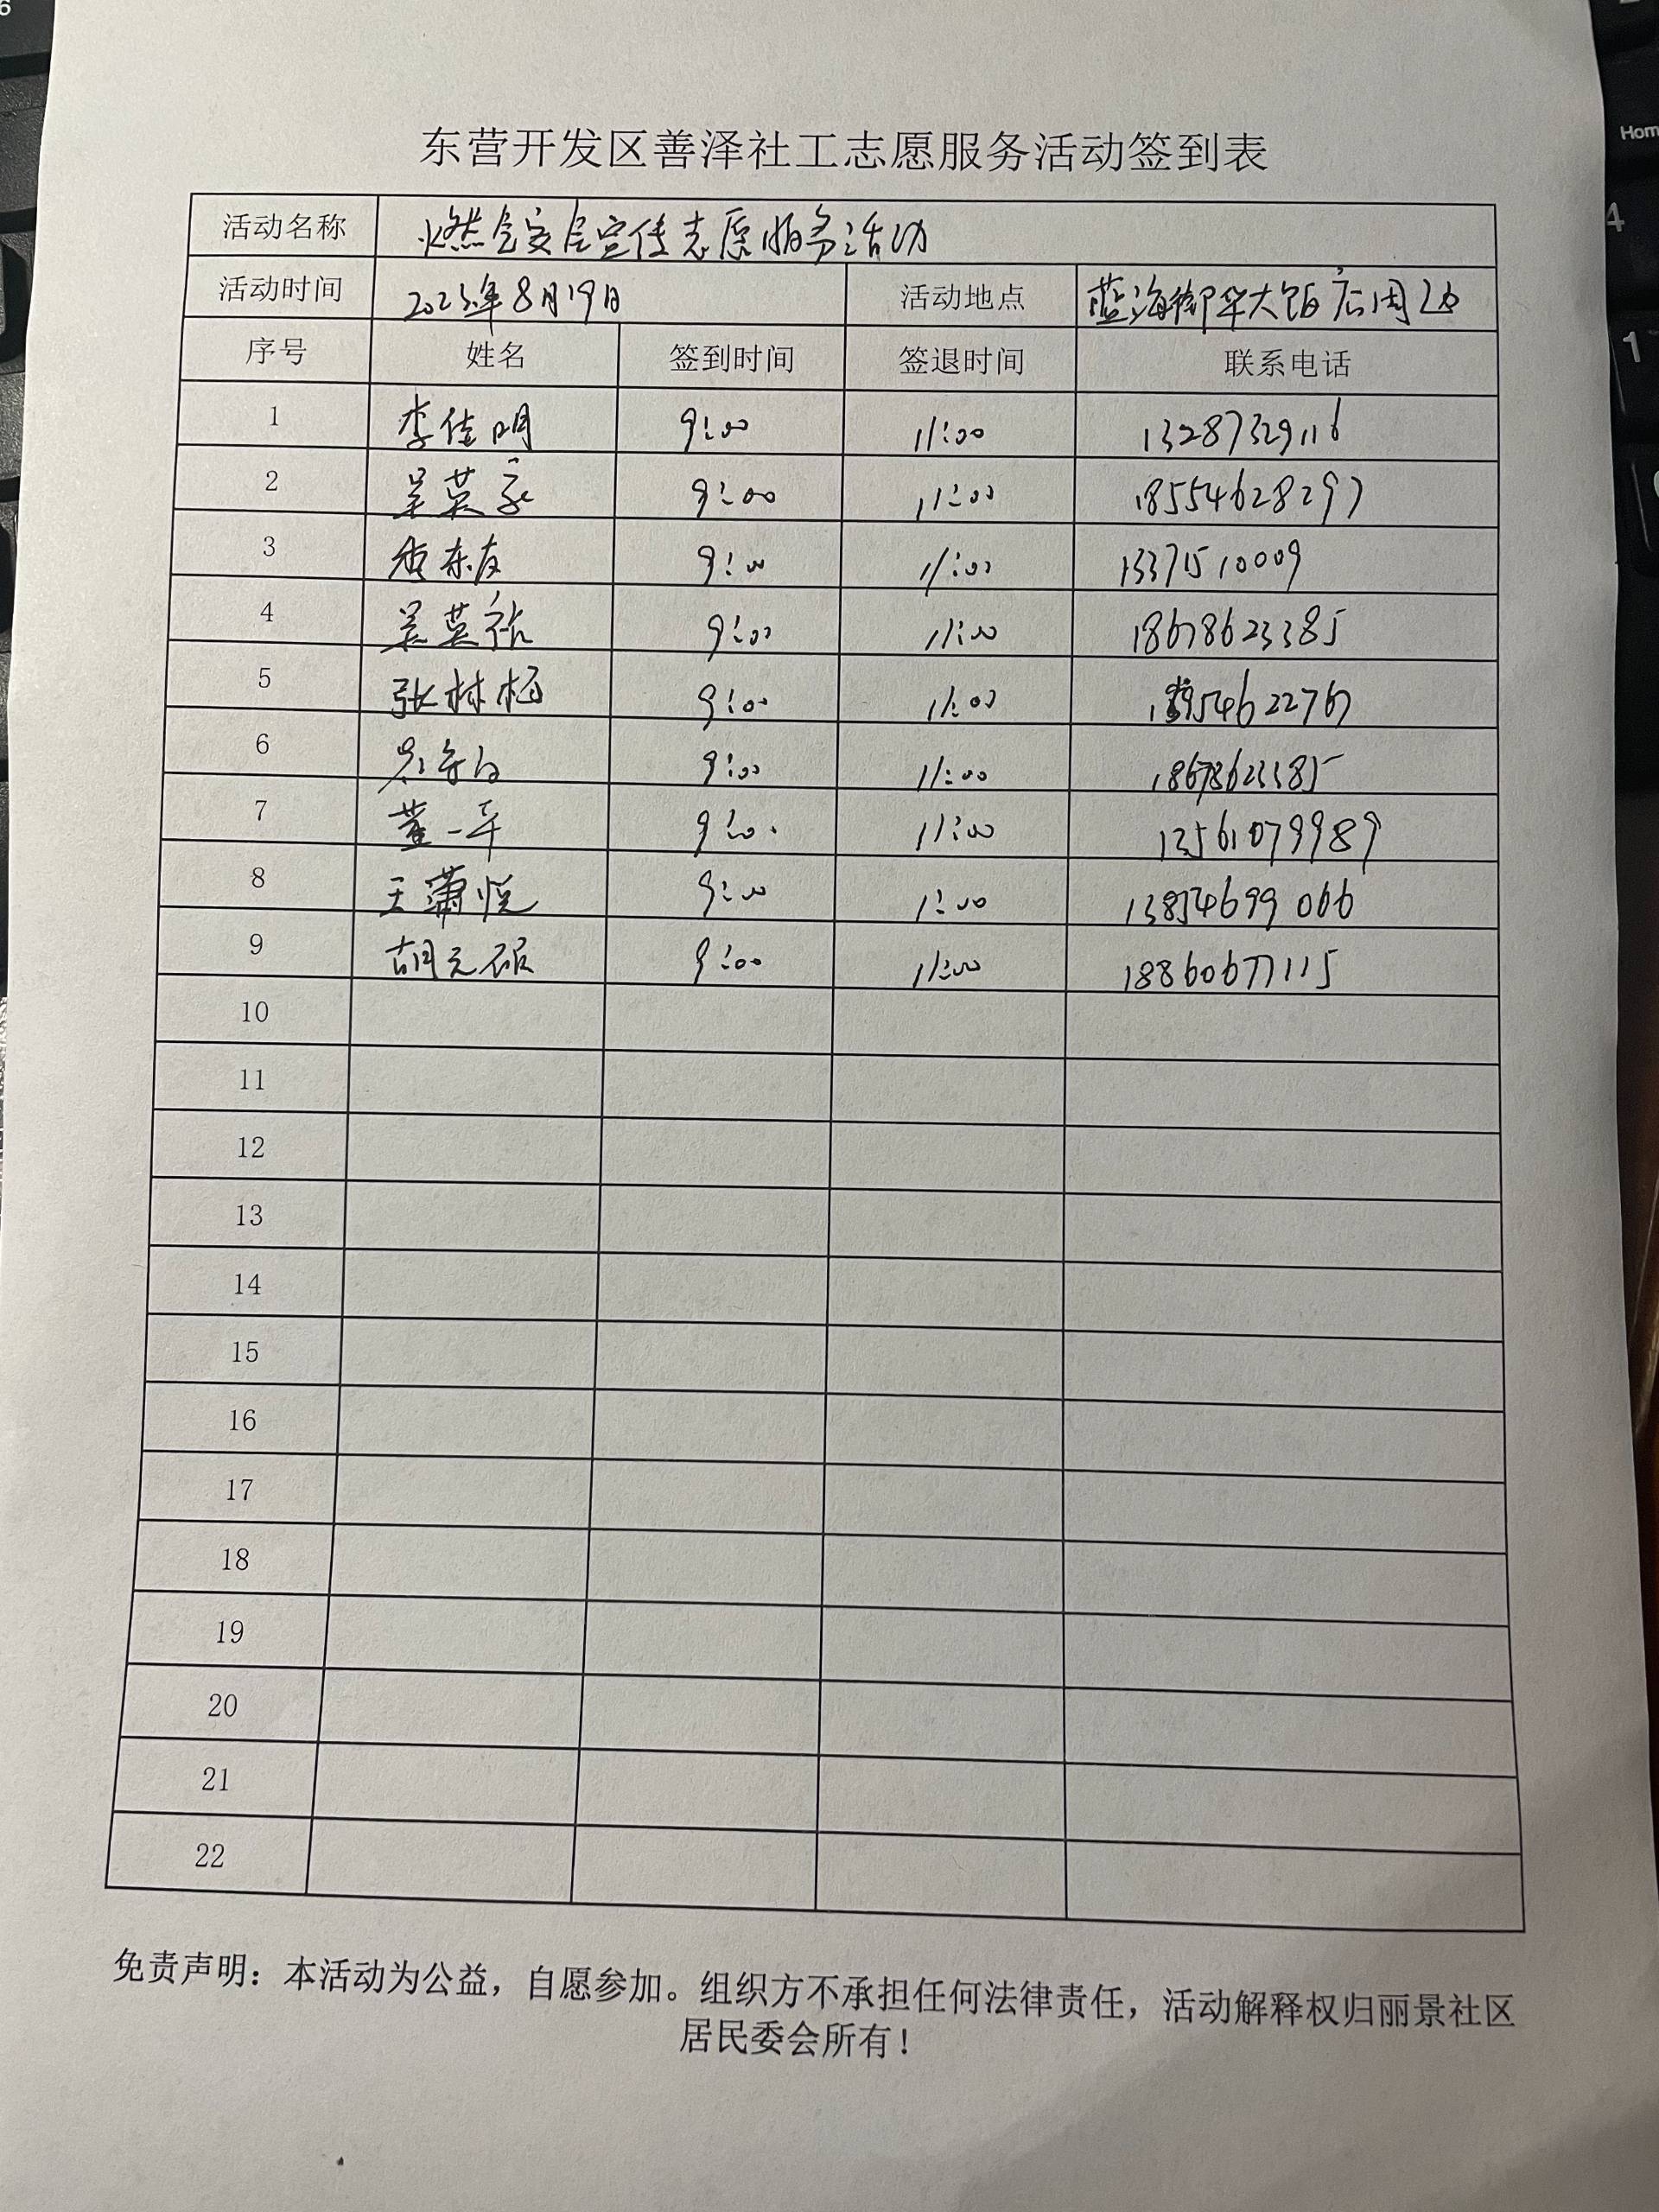 东营开发区善泽社工志愿服务活动签到表
活动名称 燃气安全宣传志愿服务活动
活动时间 2023年8月19日 活动地点 蓝海御华大饭店周边
序号 姓名 签到时间 签退时间 联系电话
1 李佳明 9:00 11:00 13287329116
2 吴英 9:00 11:00 18554628297
3 东友 9:00 11:00 13371510009
4 吴英祐 9:00 11:00 18678623385
5 张林 9:00 11:00 54622767
6 9:00 11:00 18678623385
7 董一平 9:00 11:00 13561079989
8 王潇悦 9:00 11:00 13854699066
9 胡元砚 9:00 11:00 18860677115
10
11
12
13
14
15
16
17
18
19
20
21
22
免责声明：本活动为公益，自愿参加。组织方不承担任何法律责任，活动解释权归丽景社区
居民委会所有！
Home
4
1
6